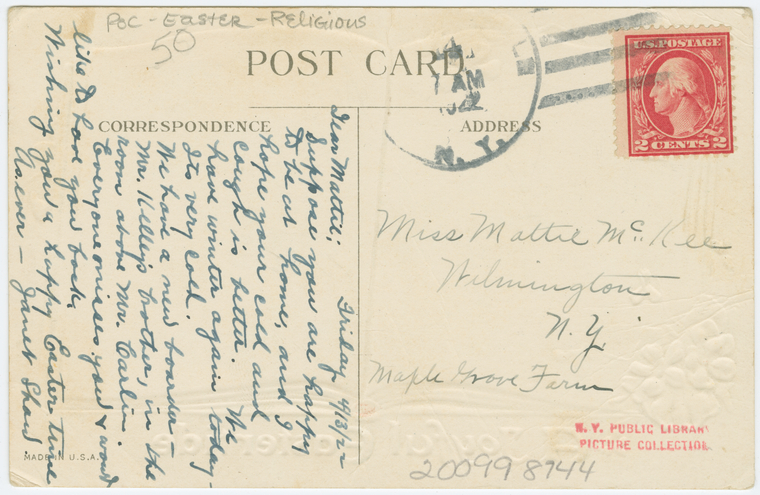 POC - EASTER - RELIGIOUS
50
POST CARD
AM
1922
N. Y.
U.S. POSTAGE
2 CENTS 2
CORRESPONDENCE
ADDRESS
Friday 4/13/22
Dear Mattie:
Suppose you are happy
to be at home, and I
hope your cold and
cough is better. We
have winter again today -
Its very cold.
We have a new boarder -
Mr. Kelly's brother, in the
room above Mr. Carlin.
Everyone misses you & would
like to have you back.
Wishing you a happy Easter time
As ever - Janet Shaw
Miss Mattie McKee
Wilmington
N. Y.
Maple Grove Farm
MADE IN U.S.A.
N. Y. PUBLIC LIBRARY
PICTURE COLLECTION.
200998744